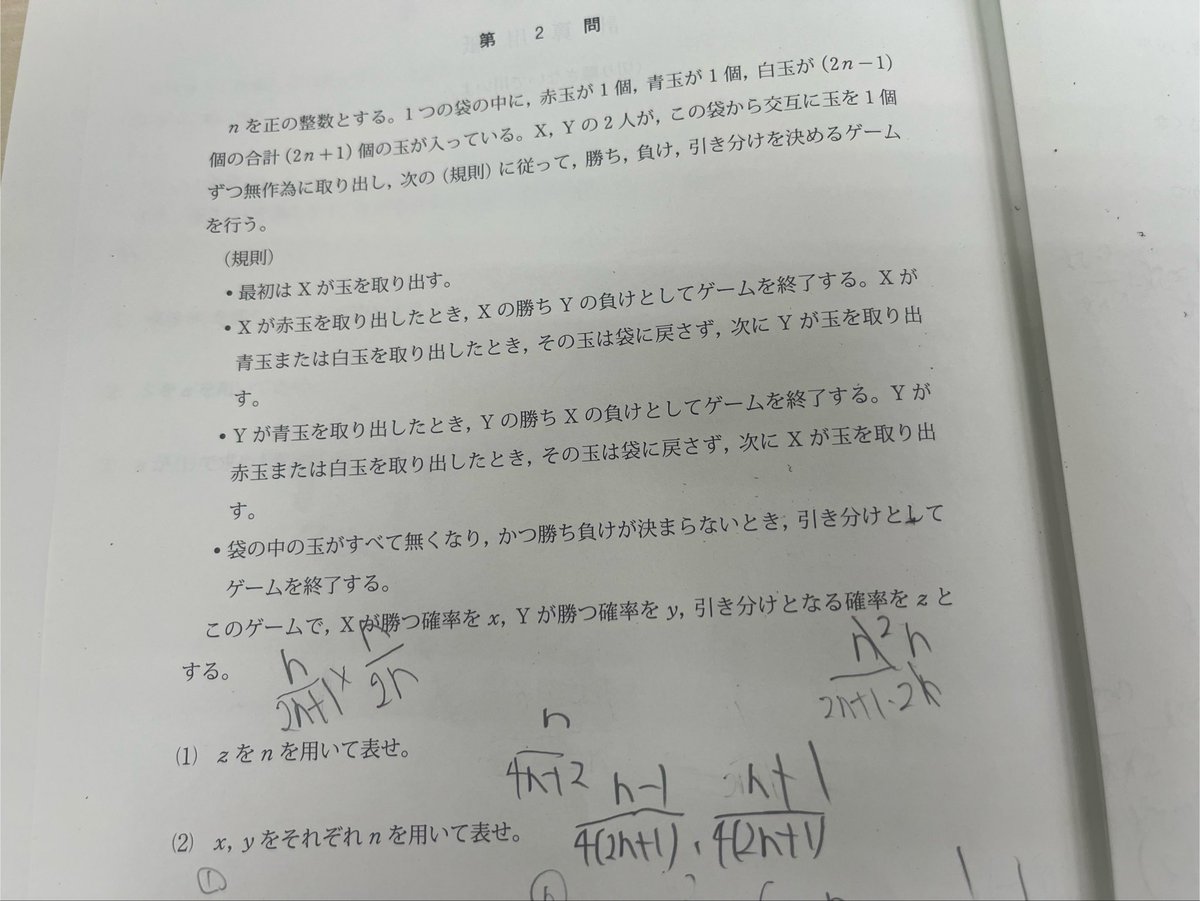 第 2 問
nを正の整数とする。1つの袋の中に,赤玉が1個,青玉が1個,白玉が(2n-1)
個の合計(2n+1)個の玉が入っている。X,Yの2人が,この袋から交互に玉を1個
ずつ無作為に取り出し,次の(規則)に従って,勝ち,負け,引き分けを決めるゲーム
を行う。
(規則)
•最初はXが玉を取り出す。
•Xが赤玉を取り出したとき,Xの勝ちYの負けとしてゲームを終了する。Xが
青玉または白玉を取り出したとき,その玉は袋に戻さず,次にYが玉を取り出
す。
•Yが青玉を取り出したとき,Yの勝ちXの負けとしてゲームを終了する。Yが
赤玉または白玉を取り出したとき,その玉は袋に戻さず,次にXが玉を取り出
す。
•袋の中の玉がすべて無くなり,かつ勝ち負けが決まらないとき,引き分けとして
ゲームを終了する。
このゲームで,Xが勝つ確率をx,Yが勝つ確率をy,引き分けとなる確率をzと
する。
n/2n+1 × n/2n
n/2n+1・2
(1) zをnを用いて表せ。
n/4n+2
(2) x,yをそれぞれnを用いて表せ。
n-1/4(2n+1), n+1/4(2n+1)
①